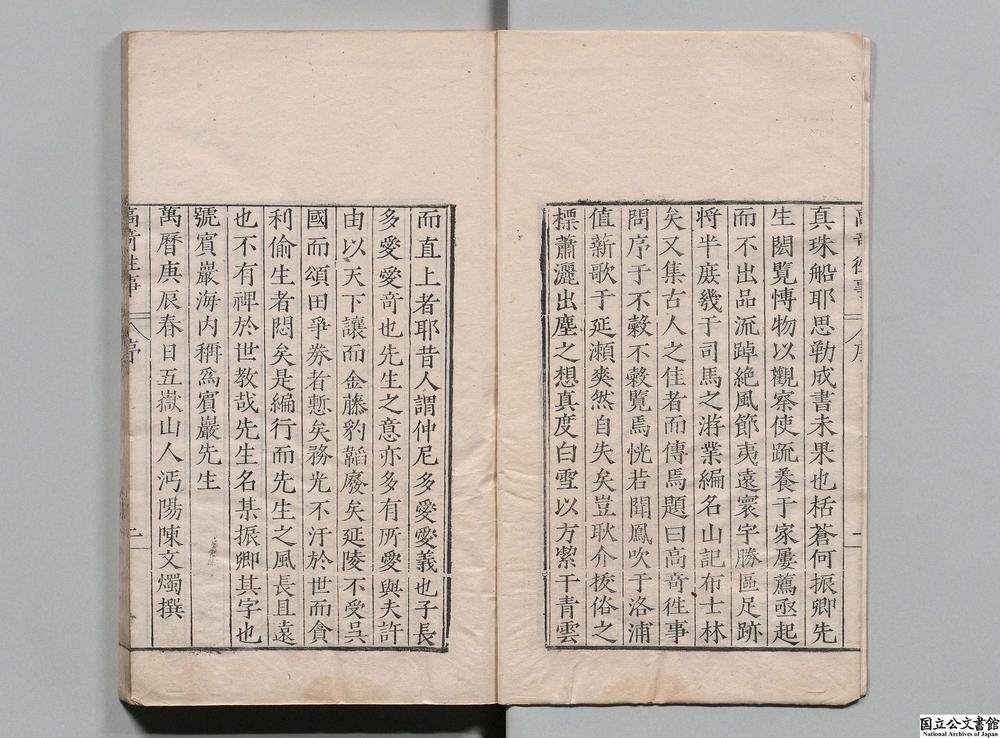 真珠船耶思勒成書未果也栝蒼何振卿先
生閎覽愽物以觀察使䟽養于家屢薦亟起
而不出品流踔絶風節夷遠寰宇勝區足跡
將半庻幾于司馬之游業編名山記布士林
矣又集古人之佳者而傳焉題曰高竒徃事
問序于不榖不榖覽焉恍若聞鳳吹于洛浦
值薪歌于延瀨爽然自失矣豈耿介㧞俗之
標蕭灑出塵之想真度白雪以方絜干青雲
而直上者耶昔人謂仲尼多愛愛義也子長
多愛愛竒也先生之意亦多有所愛與夫許
由以天下讓而金藤豹韜廢矣延陵不受吳
國而頌田爭券者慙矣務光不汙於世而貪
利偷生者悶矣是編行而先生之風長且遠
也不有裨於世教哉先生名某振卿其字也
號賓巖海内稱爲賓巖先生
萬曆庚辰春日五嶽山人沔陽陳文燭撰
高竒徃事
序
一
高竒徃事
序
二
国立公文書館
National Archives of Japan